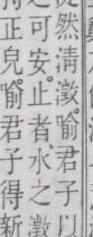 然淸澂喻君子以
可安止者水之澂
正皃喻君子得新